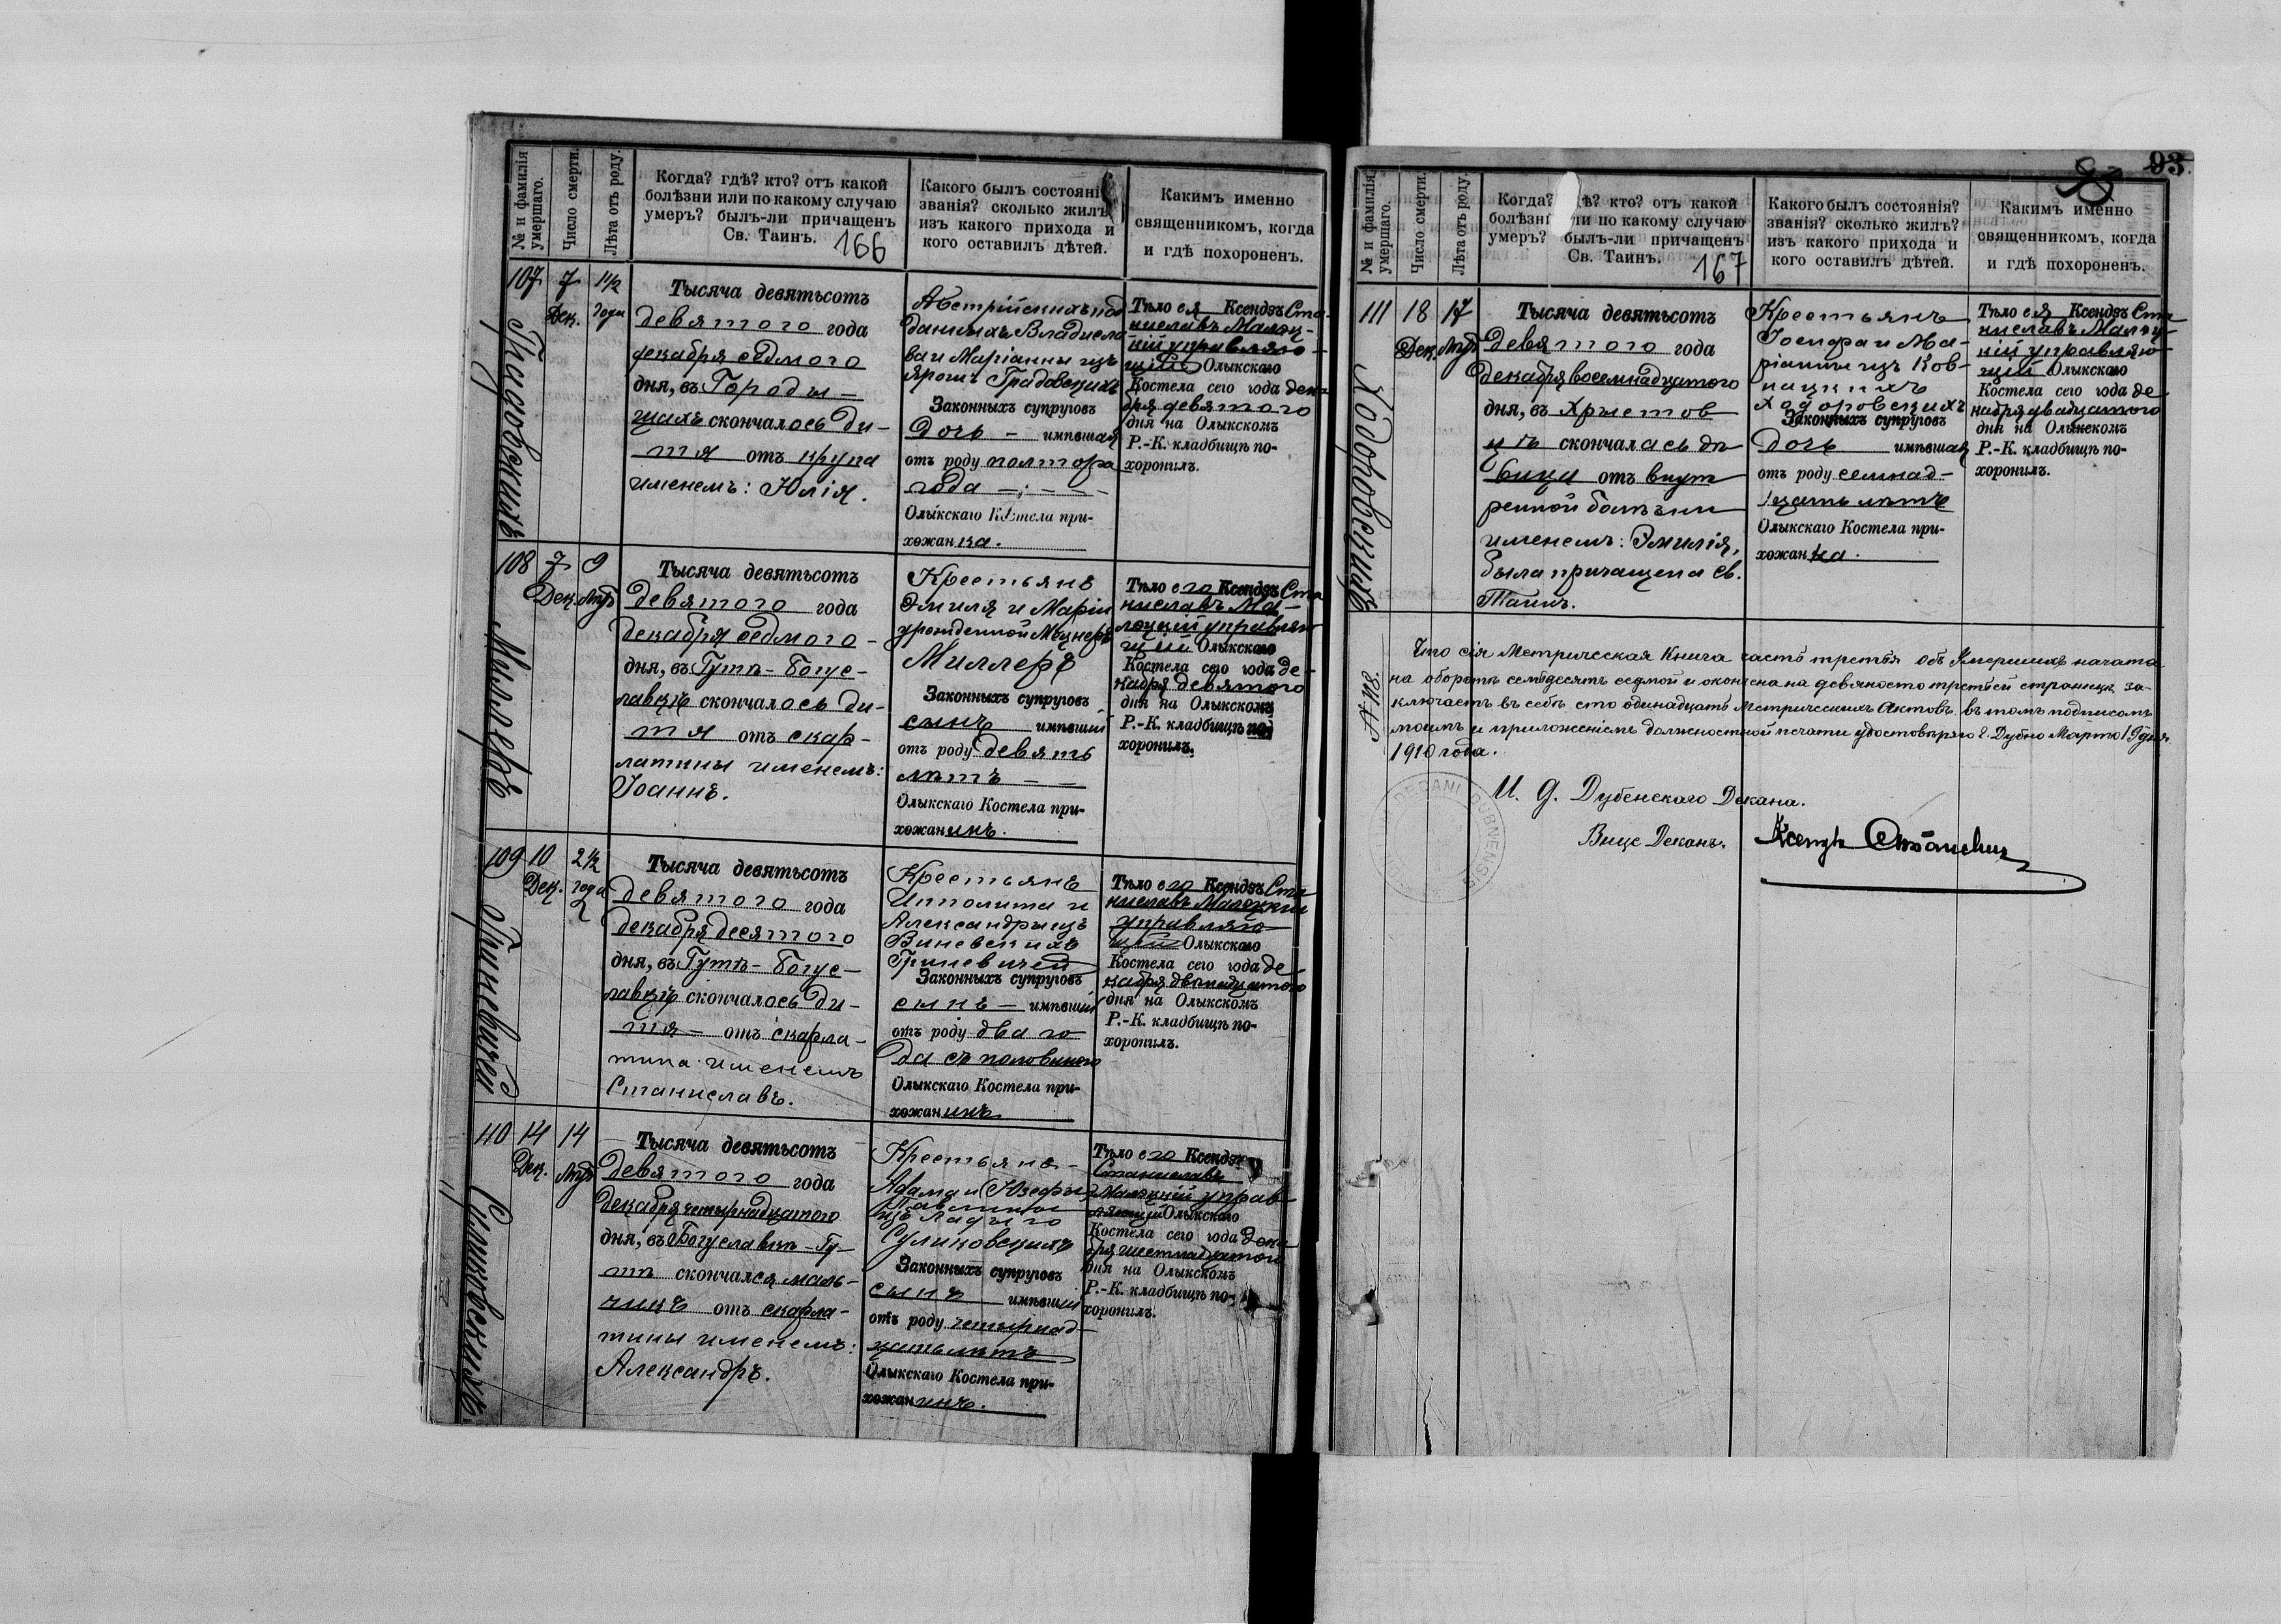 № и фамилія умершаго.
Число смерти.
Лѣта отъ роду.
Когда? гдѣ? кто? отъ какой
болѣзни или по какому случаю
умеръ? былъ-ли причащенъ
Св. Таинъ. 166
Какого былъ состоянія
званія? сколько жилъ?
изъ какого прихода и
кого оставилъ дѣтей.
Какимъ именно
священникомъ, когда
и гдѣ похороненъ.
107
Градовскихъ
7
Дек.
1½
года
Тысяча девятьсотъ
девятого года
декабря седмого
дня, въ Городи-
щахъ скончалось ди-
тя отъ крупа
именемъ: Юлія.
Австрійскихъ под
данныхъ Владисла
ва и Маріанны изъ
Ярошъ Градовскихъ
Законныхъ супруговъ
дочь - имѣвшая
отъ роду полтора
года
Олыкскаго Костела при-
хожанка.
Тѣло ея Ксендзъ Ста
ниславъ Маляц-
кій управляю-
щій Олыкскаго
Костела сего года дека
бря девятого
дня на Олыкскомъ
Р.-К. кладбищѣ по-
хоронилъ.
108
Миллеръ
7
Дек.
9
лѣтъ
Тысяча девятьсотъ
девятого года
декабря седмого -
дня, въ Гутѣ-Богус-
лавкѣ скончалось ди-
тя отъ скар-
латины именемъ:
Іоаннъ.
Крестьянъ
Эмиля и Маріи
урожденной Мецнеръ
Миллеръ
Законныхъ супруговъ
сынъ имѣвшій
отъ роду девять
лѣтъ
Олыкскаго Костела при-
хожанинъ.
Тѣло его Ксендзъ Ста
ниславъ Ма-
ляцкій управляю
щій Олыкскаго
Костела сего года де-
кабря девятого
дня на Олыкскомъ
Р.-К. кладбищѣ по-
хоронилъ.
109
Гриневичей
10
Дек.
2½
года
Тысяча девятьсотъ
девятого года
декабря десятого
дня, въ Гутѣ-Богус-
лавкѣ скончалось ди-
тя - отъ скарла-
тина именемъ
Станиславъ.
Крестьянъ
Ипполита и
Александры изъ
Виневскихъ
Гриневичей
Законныхъ супруговъ
сынъ - имѣвшій
отъ роду два го
да съ половиною
Олыкскаго Костела при-
хожанинъ
Тѣло его Ксендзъ Ста
ниславъ Маляцкій
управляю-
щій Олыкскаго
Костела сего года де
кабря двѣнадцатого
дня на Олыкскомъ
Р.-К. кладбищѣ по-
хоронилъ.
110
Суликовскихъ
14
Дек.
14
лѣтъ
Тысяча девятьсотъ
девятого года
декабря четырнадцатого
дня, въ Богуславкѣ-Гу-
тѣ скончался маль-
чикъ отъ скарла-
тины именемъ:
Александръ.
Крестьянъ-
Адама и Юзефы
Павлины
изъ
Суликовскихъ
Законныхъ супруговъ
сынъ имѣвшій
отъ роду четырнад-
цать лѣтъ
Олыкскаго Костела при-
хожанинъ.
Тѣло его Ксендзъ
Станиславъ
Маляцкій управ-
ляющій Олыкскаго
Костела сего года дека
бря шестнадцатого
дня на Олыкскомъ
Р.-К. кладбищѣ по-
хоронилъ.
93
93.
№ и фамилія умершаго.
Число смерти.
Лѣта отъ роду.
Когда? гдѣ? кто? отъ какой
болѣзни или по какому случаю
умеръ? былъ-ли причащенъ
Св. Таинъ. 167
Какого былъ состоянія?
званія? сколько жилъ?
изъ какого прихода и
кого оставилъ дѣтей.
Какимъ именно
священникомъ, когда
и гдѣ похороненъ.
111
Ходоровскихъ
18
Дек.
17
лѣтъ
Тысяча девятьсотъ
девятого года
декабря восемнадцатого
дня, въ Христов
цѣ скончалась дѣ
вица отъ внут
ренной болѣзни
именемъ: Эмилія,
была причащена Св.
Таинъ.
Крестьянъ
Іосифа и Ма-
ріанны изъ Ков-
нацкихъ
Ходоровскихъ
Законныхъ супруговъ
дочь имѣвшая
отъ роду семнад-
цать лѣтъ
Олыкскаго Костела при-
хожанка.
Тѣло ея Ксендзъ Ста
ниславъ Маляц-
кій управляю-
щій Олыкскаго
Костела сего года де-
кабря двадцатого
дня на Олыкскомъ
Р.-К. кладбищѣ по-
хоронилъ.
№ 118.
Что сія Метрическая Книга часть третья объ Умершихъ начата
на оборотѣ семьдесятъ седмой и окончена на девяносто третьей страницѣ за-
ключаетъ въ себѣ сто одинадцать Метрическихъ Актовъ въ томъ подписомъ
моимъ и приложеніемъ должностной печати удостовѣряю г. Дубно Марта 19 дня
1910 года.
И. д. Дубенскаго Декана.
Вице Деканъ. Ксендзъ
DECANI DUBNENSIS